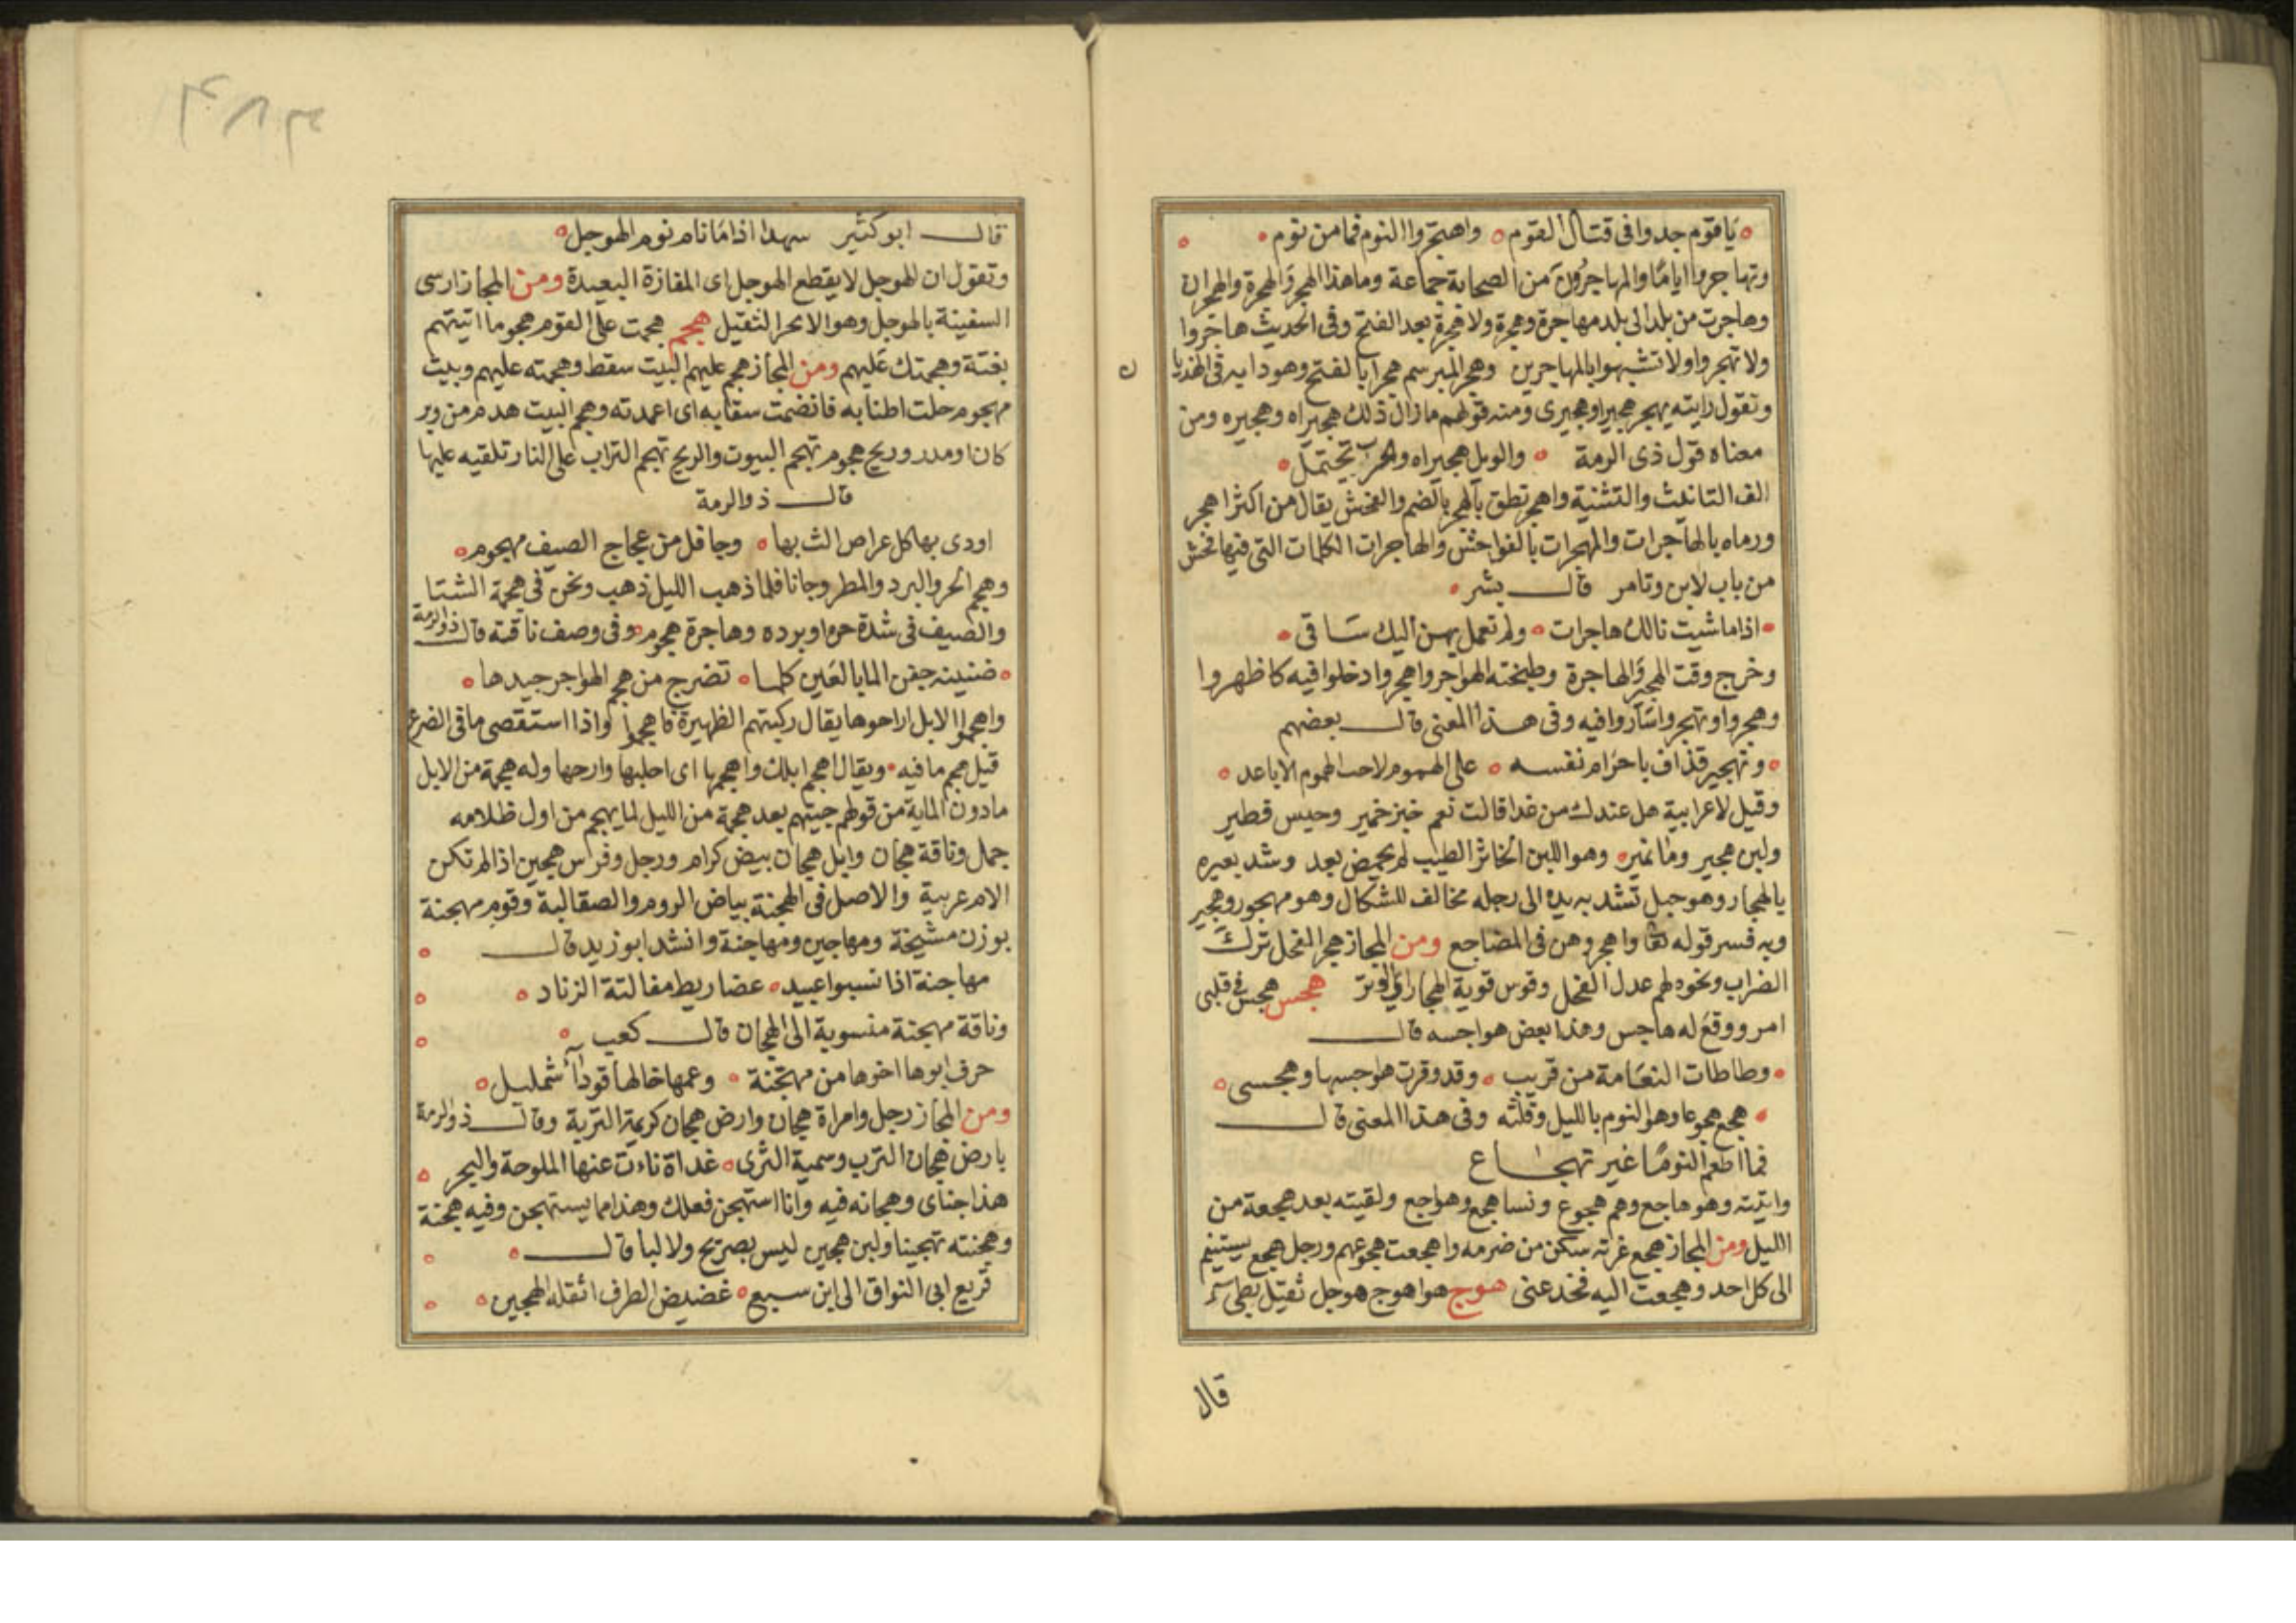 يا قوم جدوا في قتال القوم واهتجروا النوم فما من نوم
وتهاجروا اياما والمهاجرون من الصحابة جماعة وما هذا الهجر والهجرة والهجران
وهاجرت من بلد الى بلد مهاجرة وهجرة ولا هجرة بعد الفتح وفى الحديث هاجروا
ولا تهجروا ولا تشبهوا بالمهاجرين وهجر المبرسم هجرا بالفتح وهو دابه فى الهذيا
ن
وتقول رايته يهجر هجيرا وهجيرى ومنه قولهم ما زال ذلك هجيراه وهجيره ومن
معناه قول ذى الرمة والويل هجيراه والحرب تحتمل
الف التانيث والتثنية واهجر نطق بالهجر بالضم والفحش يقال من اكثر اهجر
ورماه بالهاجرات والمهجرات بالفواحش والهاجرات الكلمات التى فيها فحش
من باب لابن وتامر قال بشر
اذا ما شيت نالك هاجرات ولم تعمل بهن اليك ساقى
وخرج وقت الهجير والهاجرة وطبخته الهواجر واهجروا دخلوا فيه كاظهروا
وهجروا وتهجروا ساروا فيه وفى هذا المعنى قال بعضهم
وتهجير قذاف باجرام نفسه على الهموم لاحب الهموم الاباعد
وقيل لاعرابية هل عندك من غدا قالت نعم خبز خمير وحيس فطير
ولبن هجير وما نمير وهو اللبن الخاثر الطيب لم يحمض بعد وشد بعيره
بالهجار وهو حبل تشد به يده الى رجله مخالف للشكال وهو مهجور وهجير
وبه فسر قوله تعا واهجروهن فى المضاجع ومن المجاز هجر الفحل ترك
الضراب ونحوه لهم عدل الفحل وقوس قوية الهجار اى الوتر هجس هجس فى قلبى
امر ووقع له هاجس وهذا بعض هواجسه قال
وطاطات النعامة من قريب وقد وقرت هواجسها وهجسى
هجع هجوعا وهو النوم بالليل وقلته وفى هذا المعنى قال
فما اطعم النوم غير تهجاع
واتيته وهو هاجع وهم هجوع ونسا هجع وهواجع ولقيته بعد هجعة من
الليل ومن المجاز هجع غرثه سكن من ضرمه واهجعت هجوعهم ورجل هجع يستنيم
الى كل احد وهجعت اليه فخدعنى هوج هو اهوج هوجل ثقيل بطى
قال
قال ابو كثير سهدا اذا ما نام نوم الهوجل
وتقول ان الهوجل لا يقطع الهوجل اى المفازة البعيدة ومن المجاز ارسى
السفينة بالهوجل وهو الانجر الثقيل هجم هجمت على القوم هجوما اتيتهم
بغتة وهجمتك عليهم ومن المجاز هجم عليهم البيت سقط وهجمته عليهم وبيت
مهجوم حلت اطنابه فانضمت سقابه اى اعمدته وهجم البيت هدم من وبر
كان او مدر وريح هجوم تهجم البيوت والريح تهجم التراب على النار تلقيه عليها
قال ذو الرمة
اودى بها كل عراص الث بها وجافل من عجاج الصيف مهجوم
وهجم الحر والبرد والمطر وجانا فلما ذهب الليل ذهب ونحن فى هجمة الشتا
والصيف فى شدة حره وبرده وهاجرة هجوم وفى وصف ناقته قال ذو الرمة
ضنينه جفن المابالعين كلما تضرج من هجم الهواجر جيدها
واهجموا الابل اراحوها يقال ركبتهم الظهيرة فاهجموا واذا استقصى ما فى الضرع
قيل هجم ما فيه ويقال اهجم ابلك واهجمها اى احلبها وارحها وله هجمة من الابل
ما دون الماية من قولهم جيتهم بعد هجمة من الليل لما يهجم من اول ظلامه
جمل وناقة هجان وابل هجان بيض كرام ورجل وفرس هجين اذا لم تكن
الام عربية والاصل فى الهجنة بياض الروم والصقالبة وقوم مهجنة
بوزن مشيخة ومهاجين ومهاجنة وانشد ابو زيد قال
مهاجنة اذا نسبوا عبيد عضاريط مغالثة الزناد
وناقة مهجنة منسوبة الى الهجان قال كعب
حرف ابوها اخوها من مهجنة وعمها خالها قوداء شمليل
ومن المجاز رجل وامراة هجان وارض هجان كريمة التربة وقال ذو الرمة
بارض هجان الترب وسمية الثرى غداة ناءت عنها الملوحة والبحر
هذا جناى وهجانه فيه وانا استهجن فعلك وهذا مما يستهجن وفيه هجنة
وهجنته تهجينا ولبن هجين ليس بصريح ولا لبا قال
قريع ابى النواق الى ابن سبيع غضيض الطرف اثقله الهجين